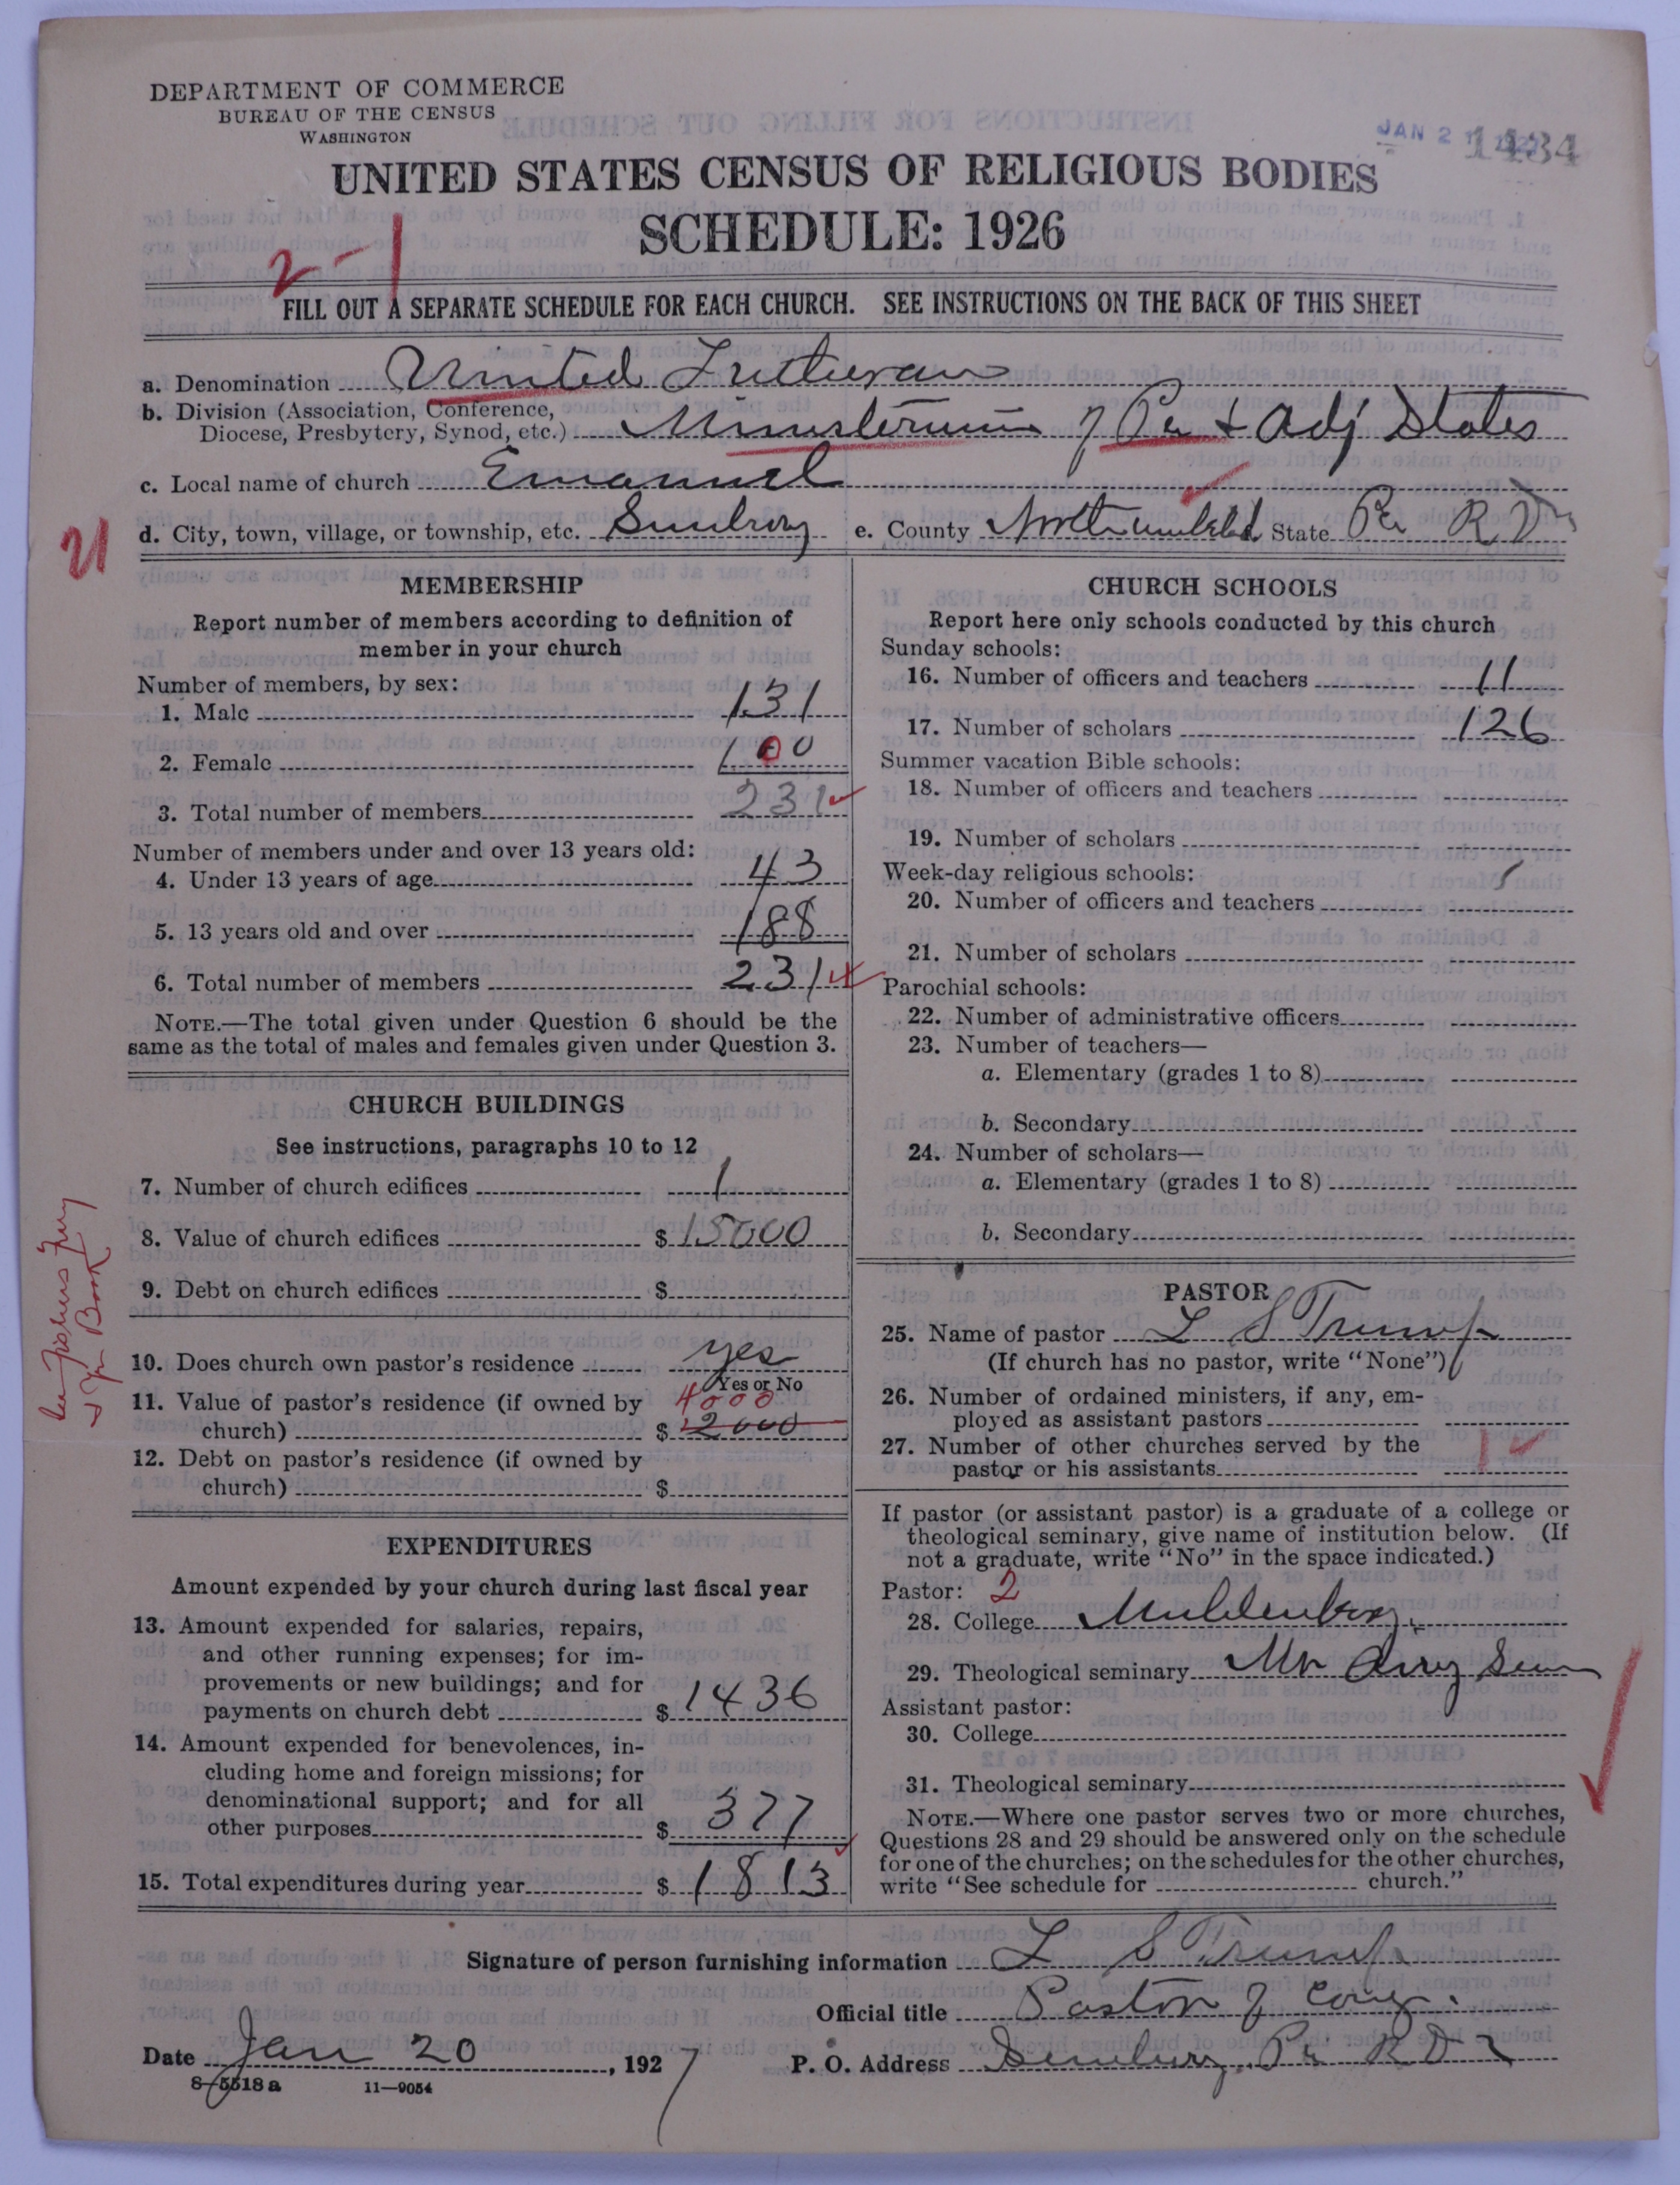 DEPARTMENT OF COMMERCE
BUREAU OF THE CENSUS
WASHINGTON
JAN 2 1434
UNITED STATES CENSUS OF RELIGIOUS BODIES
SCHEDULE: 1926
2-1
FILL OUT A SEPARATE SCHEDULE FOR EACH CHURCH. SEE INSTRUCTIONS ON THE BACK OF THIS SHEET
a. Denomination United Lutheran
b. Division (Association, Conference,
Diocese, Presbytery, Synod, etc.) Ministerium of Pa & Adj States
c. Local name of church Emanuel
d. City, town, village, or township, etc. Sunbury e. County Northumberland State Pa R D
21
MEMBERSHIP
Report number of members according to definition of
member in your church
Number of members, by sex:
1. Male 131
2. Female 100
3. Total number of members 231
Number of members under and over 13 years old:
4. Under 13 years of age 43
5. 13 years old and over 188
6. Total number of members 231
NOTE.—The total given under Question 6 should be the
same as the total of males and females given under Question 3.
CHURCH BUILDINGS
See instructions, paragraphs 10 to 12
7. Number of church edifices 1
8. Value of church edifices $ 15000
9. Debt on church edifices $
10. Does church own pastor's residence yes
Yes or No
11. Value of pastor's residence (if owned by 4000
church) $ 2000
12. Debt on pastor's residence (if owned by
church) $
See
Yr Book
EXPENDITURES
Amount expended by your church during last fiscal year
13. Amount expended for salaries, repairs,
and other running expenses; for im-
provements or new buildings; and for
payments on church debt $ 1436
14. Amount expended for benevolences, in-
cluding home and foreign missions; for
denominational support; and for all
other purposes $ 377
15. Total expenditures during year $ 1813
CHURCH SCHOOLS
Report here only schools conducted by this church
Sunday schools:
16. Number of officers and teachers 11
17. Number of scholars 126
Summer vacation Bible schools:
18. Number of officers and teachers
19. Number of scholars
Week-day religious schools:
20. Number of officers and teachers
21. Number of scholars
Parochial schools:
22. Number of administrative officers
23. Number of teachers—
a. Elementary (grades 1 to 8)
b. Secondary
24. Number of scholars—
a. Elementary (grades 1 to 8)
b. Secondary
PASTOR
25. Name of pastor L S Trump
(If church has no pastor, write "None")
26. Number of ordained ministers, if any, em-
ployed as assistant pastors
27. Number of other churches served by the
pastor or his assistants 1
If pastor (or assistant pastor) is a graduate of a college or
theological seminary, give name of institution below. (If
not a graduate, write "No" in the space indicated.)
Pastor: 2
28. College Muhlenberg
29. Theological seminary Mt Airy Sem
Assistant pastor:
30. College
31. Theological seminary
NOTE.—Where one pastor serves two or more churches,
Questions 28 and 29 should be answered only on the schedule
for one of the churches; on the schedules for the other churches,
write "See schedule for church."
Signature of person furnishing information L S Trump
Official title Pastor of Cong.
Date Jan 20, 1927 P. O. Address Sunbury, Pa R D 2
8-5518 a 11-9054